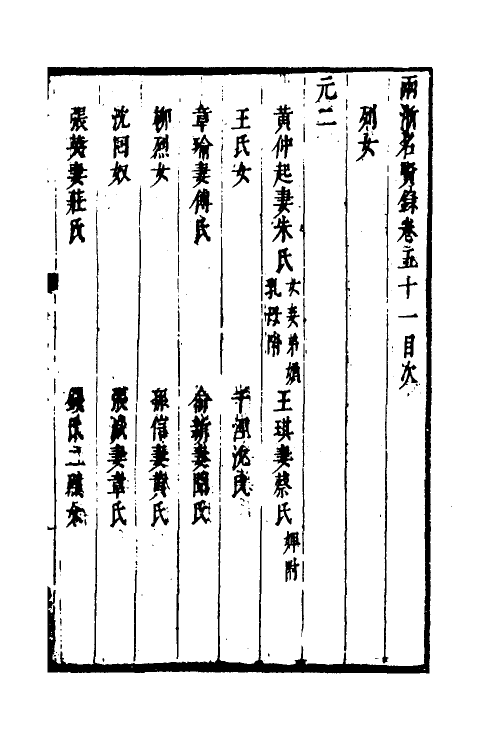 兩浙名賢錄卷五十一目次
列女
元二
黃仲起妻朱氏 女妾弟婦乳母附 王琪妻蔡氏 婢附
王氏女 沈氏
章瑜妻傅氏 俞新妻聞氏
柳烈女 孫信妻 氏
沈 奴 張 妻韋氏
張 妻莊氏 氏二 女